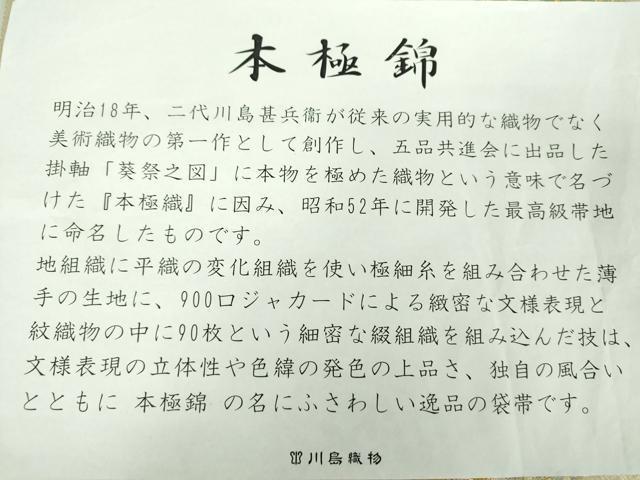 本極錦
明治18年、二代川島甚兵衞が従来の実用的な織物でなく
美術織物の第一作として創作し、五品共進会に出品した
掛軸「葵祭之図」に本物を極めた織物という意味で名づ
けた『本極織』に因み、昭和52年に開発した最高級帯地
に命名したものです。
地組織に平織の変化組織を使い極細糸を組み合わせた薄
手の生地に、900口ジャカードによる緻密な文様表現と
紋織物の中に90枚という細密な綴組織を組み込んだ技は、
文様表現の立体性や色緯の発色の上品さ、独自の風合い
とともに 本極錦 の名にふさわしい逸品の袋帯です。
川島織物